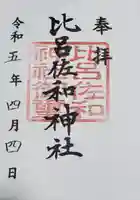 奉拝
比呂佐和神社
令和五年四月四日